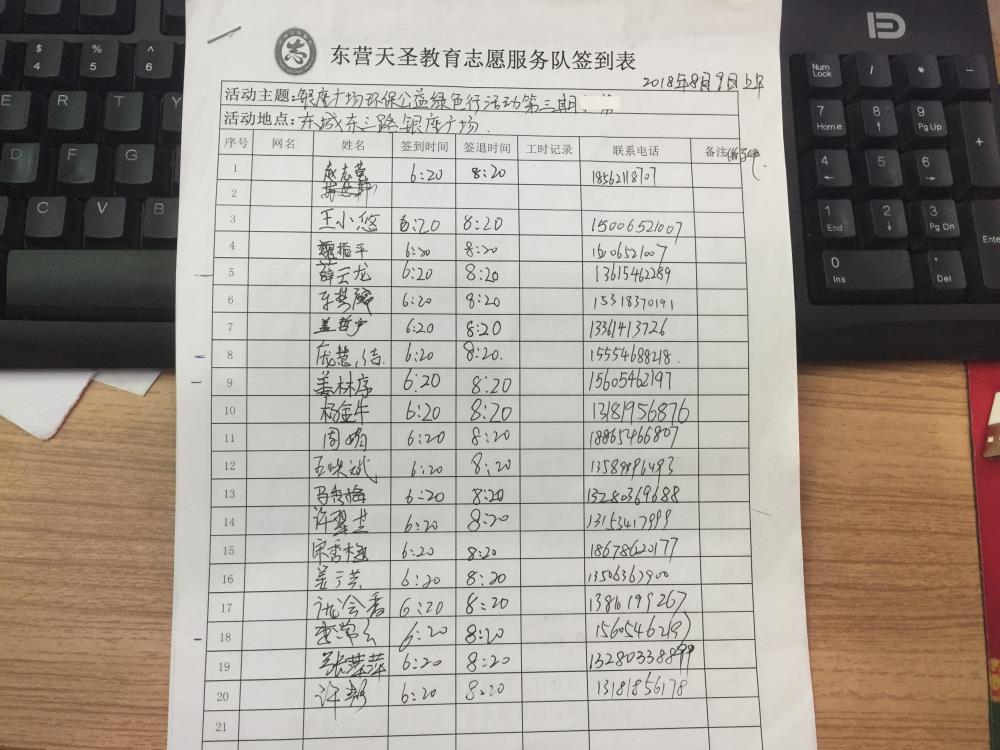 东营天圣教育志愿服务队签到表
2018年8月9日
活动主题:银座广场环保公益绿色行活动第三期
活动地点:东城东三路银座广场.
序号 网名 姓名 签到时间 签退时间 工时记录 联系电话 备注
1 赵志营 6:20 8:20
2
3 王小悠 6:20 8:20 15006521007
4 6:20 8:20
5 薛云龙 6:20 8:20 13615462289
6 6:20 8:20 15318370191
7 6:20 8:20 13361413726
8 庞慧洁 6:20 8:20. 15554688218.
9 姜林序 6:20 8:20 15605462197
10 杨金牛 6:20 8:20 13181956876
11 周娟 6:20 8:20 18865466807
12 6:20 8:20 13589996493
13 马秀梅 6:20 8:20 13280369688
14 许翠芝 6:20 8:20 13153417999
15 宋香梅 6:20 8:20 18678620177
16 姜兰 6:20 8:20 13506367900
17 6:20 8:20
18 6:20 8:20 15605462197
19 张萍萍 6:20 8:20 13280338899
20 许 6:20 8:20 13181856178
21